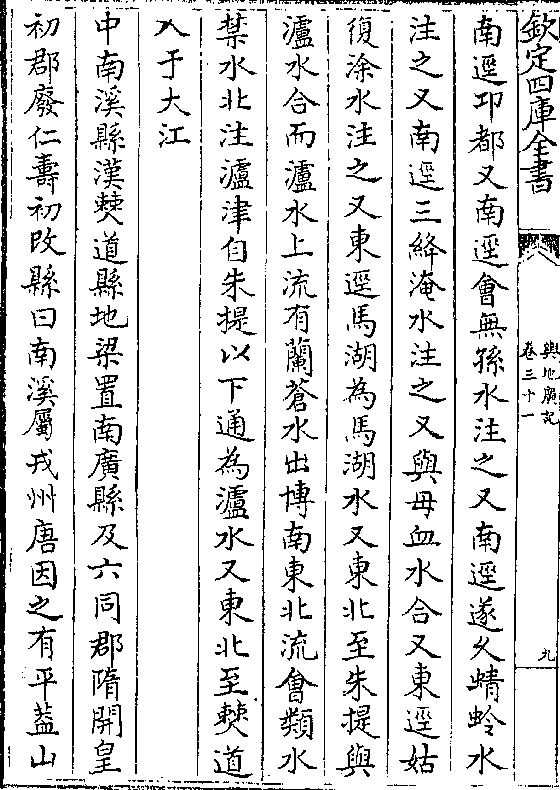 欽定四庫全書
輿地廣記
卷三十一
九
南逕邛都又南逕會無孫水注之又南逕遂久蜻蛉水
注之又南逕三絳淹水注之又與母血水合又東逕姑
復涂水注之又東逕馬湖為馬湖水又東北至朱提與
瀘水合而瀘水上流有蘭蒼水出博南東北流會類水
禁水北注瀘津自朱提以下通為瀘水又東北至僰道
入于大江
中南溪縣漢僰道縣地梁置南廣縣及六同郡隋開皇
初郡廢仁壽初改縣曰南溪屬戎州唐因之有平蓋山